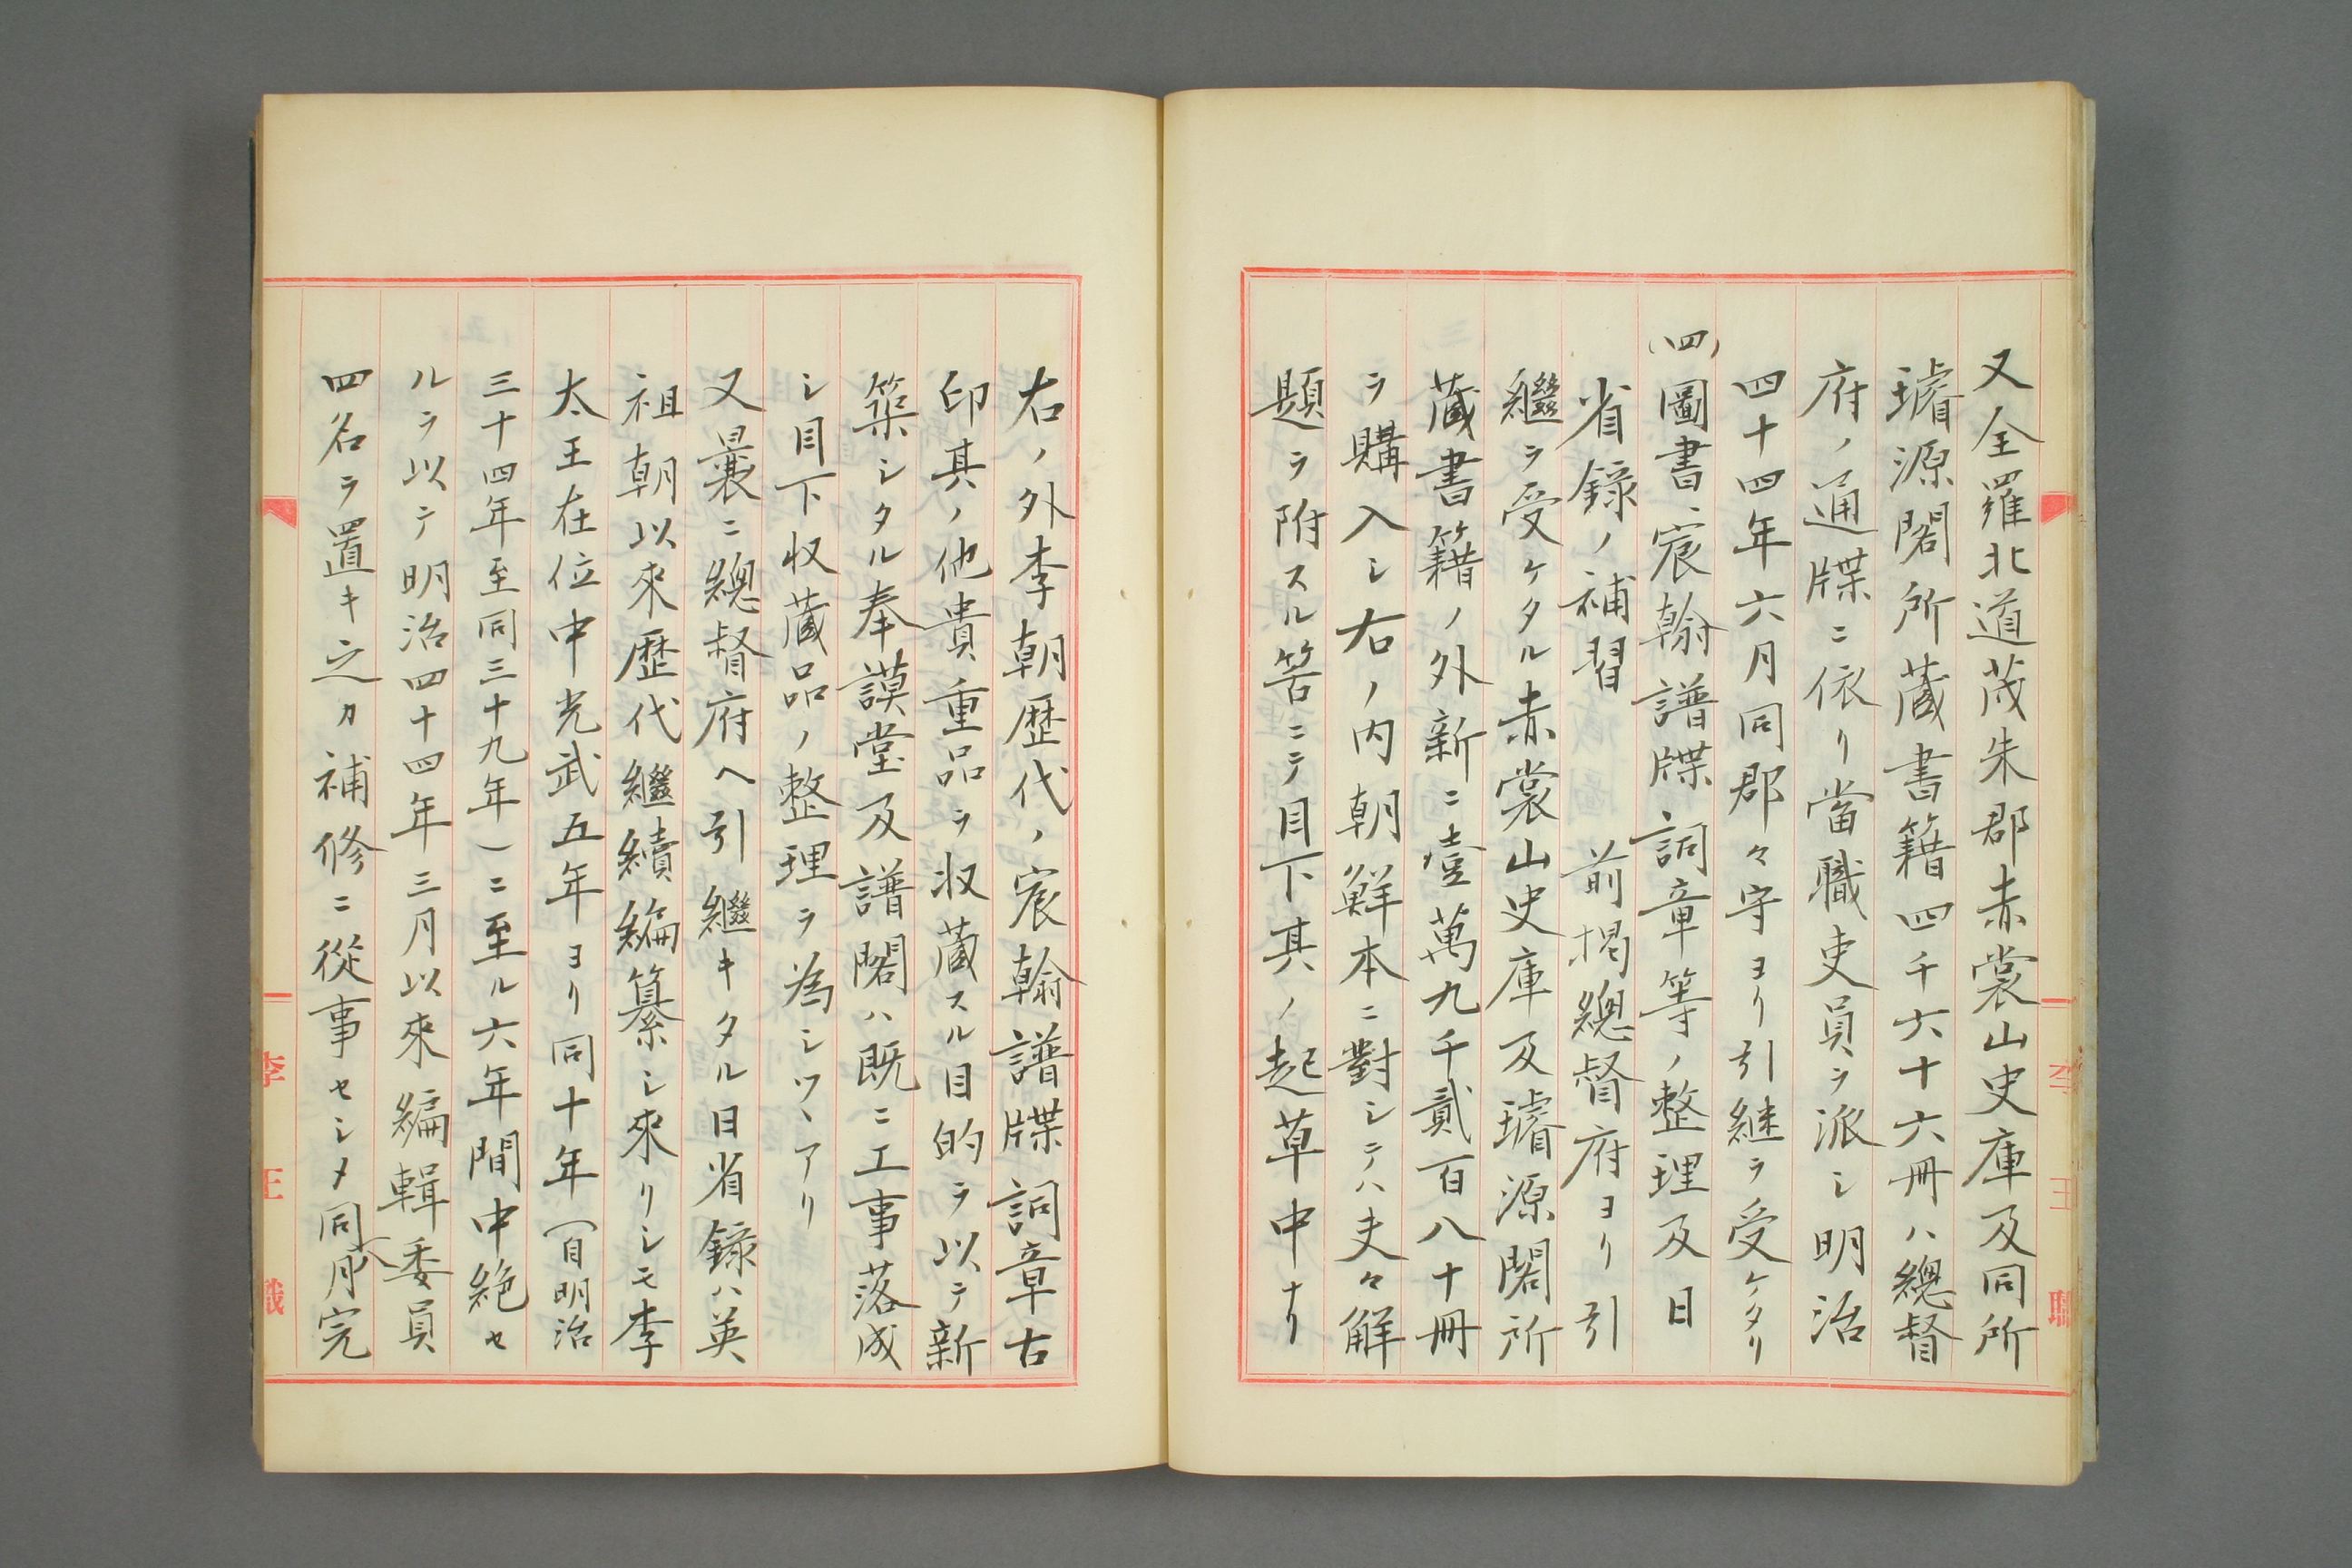 又全羅北道茂朱郡赤裳山史庫及同所
璿源閣所蔵書籍四千六十六冊ハ總督
府ノ通牒ニ依リ當職吏員ヲ派シ明治
四十四年六月同郡々守ヨリ引継ヲ受ケタリ
(四)圖書、宸翰譜牒詞章等ノ整理及日
省錄ノ補習 前掲總督府ヨリ引
繼ヲ受ケタル赤裳山史庫及璿源閣所
蔵書籍ノ外新ニ壹萬九千貳百八十冊
ヲ購入シ右ノ内朝鮮本ニ對シテハ夫々解
題ヲ附スル筈ニテ目下其ノ起草中ナリ
右ノ外李朝歴代ノ宸翰譜牒詞章古
印其ノ他貴重品ヲ収蔵スル目的ヲ以テ新
築シタル奉謨堂及譜閣ハ既ニ工事落成
シ目下収蔵品ノ整理ヲ為シツヽアリ
又曩ニ總督府ヘ引繼キタル日省錄ハ英
祖朝以來歴代繼續編纂シ來リシモ李
太王在位中光武五年ヨリ同十年(自明治
三十四年至同三十九年)ニ至ル六年間中絶セ
ルヲ以テ明治四十四年三月以來編輯委員
四名ヲ置キ之カ補修ニ從事セシメ同六月完
李王職
李王職